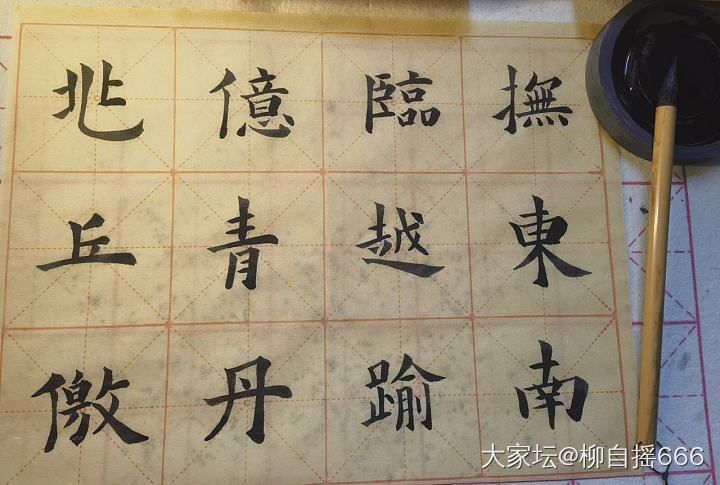 撫臨億兆
東越青丘
南踰丹儌
大家坛@柳自摇666